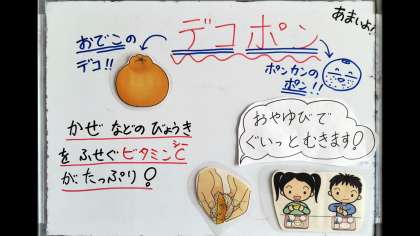 デコポン
あまいよ!
おでこの
デコ!!
ポンカンの
ポン!!
おやゆびで
ぐいっとむきます!
かぜなどのびょうき
をふせぐビタミンC
シー
がたっぷり!